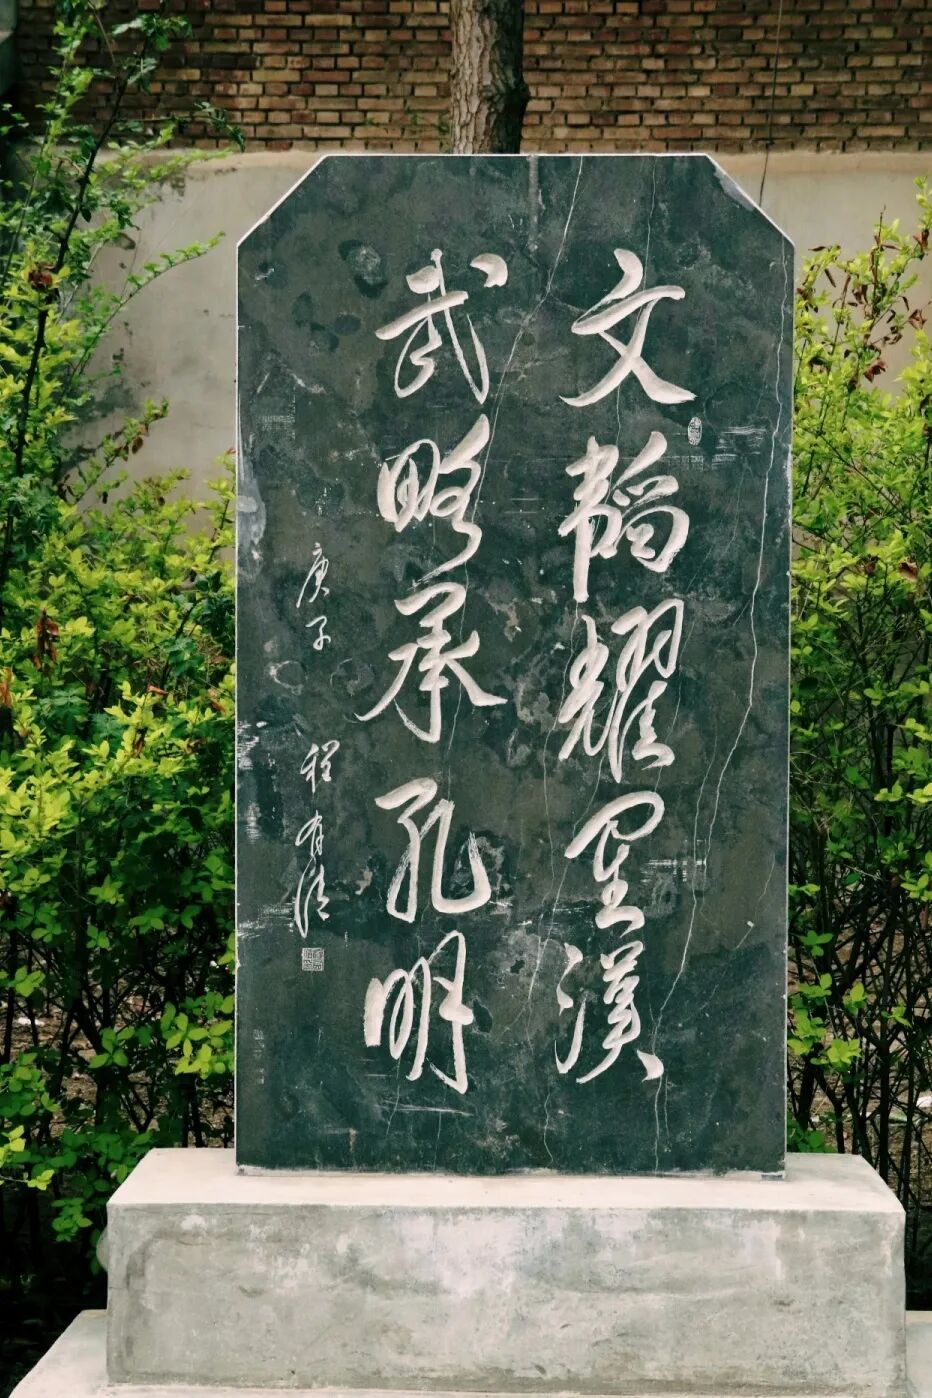 文韬耀星漢
武略承孔明
庚子 程有清